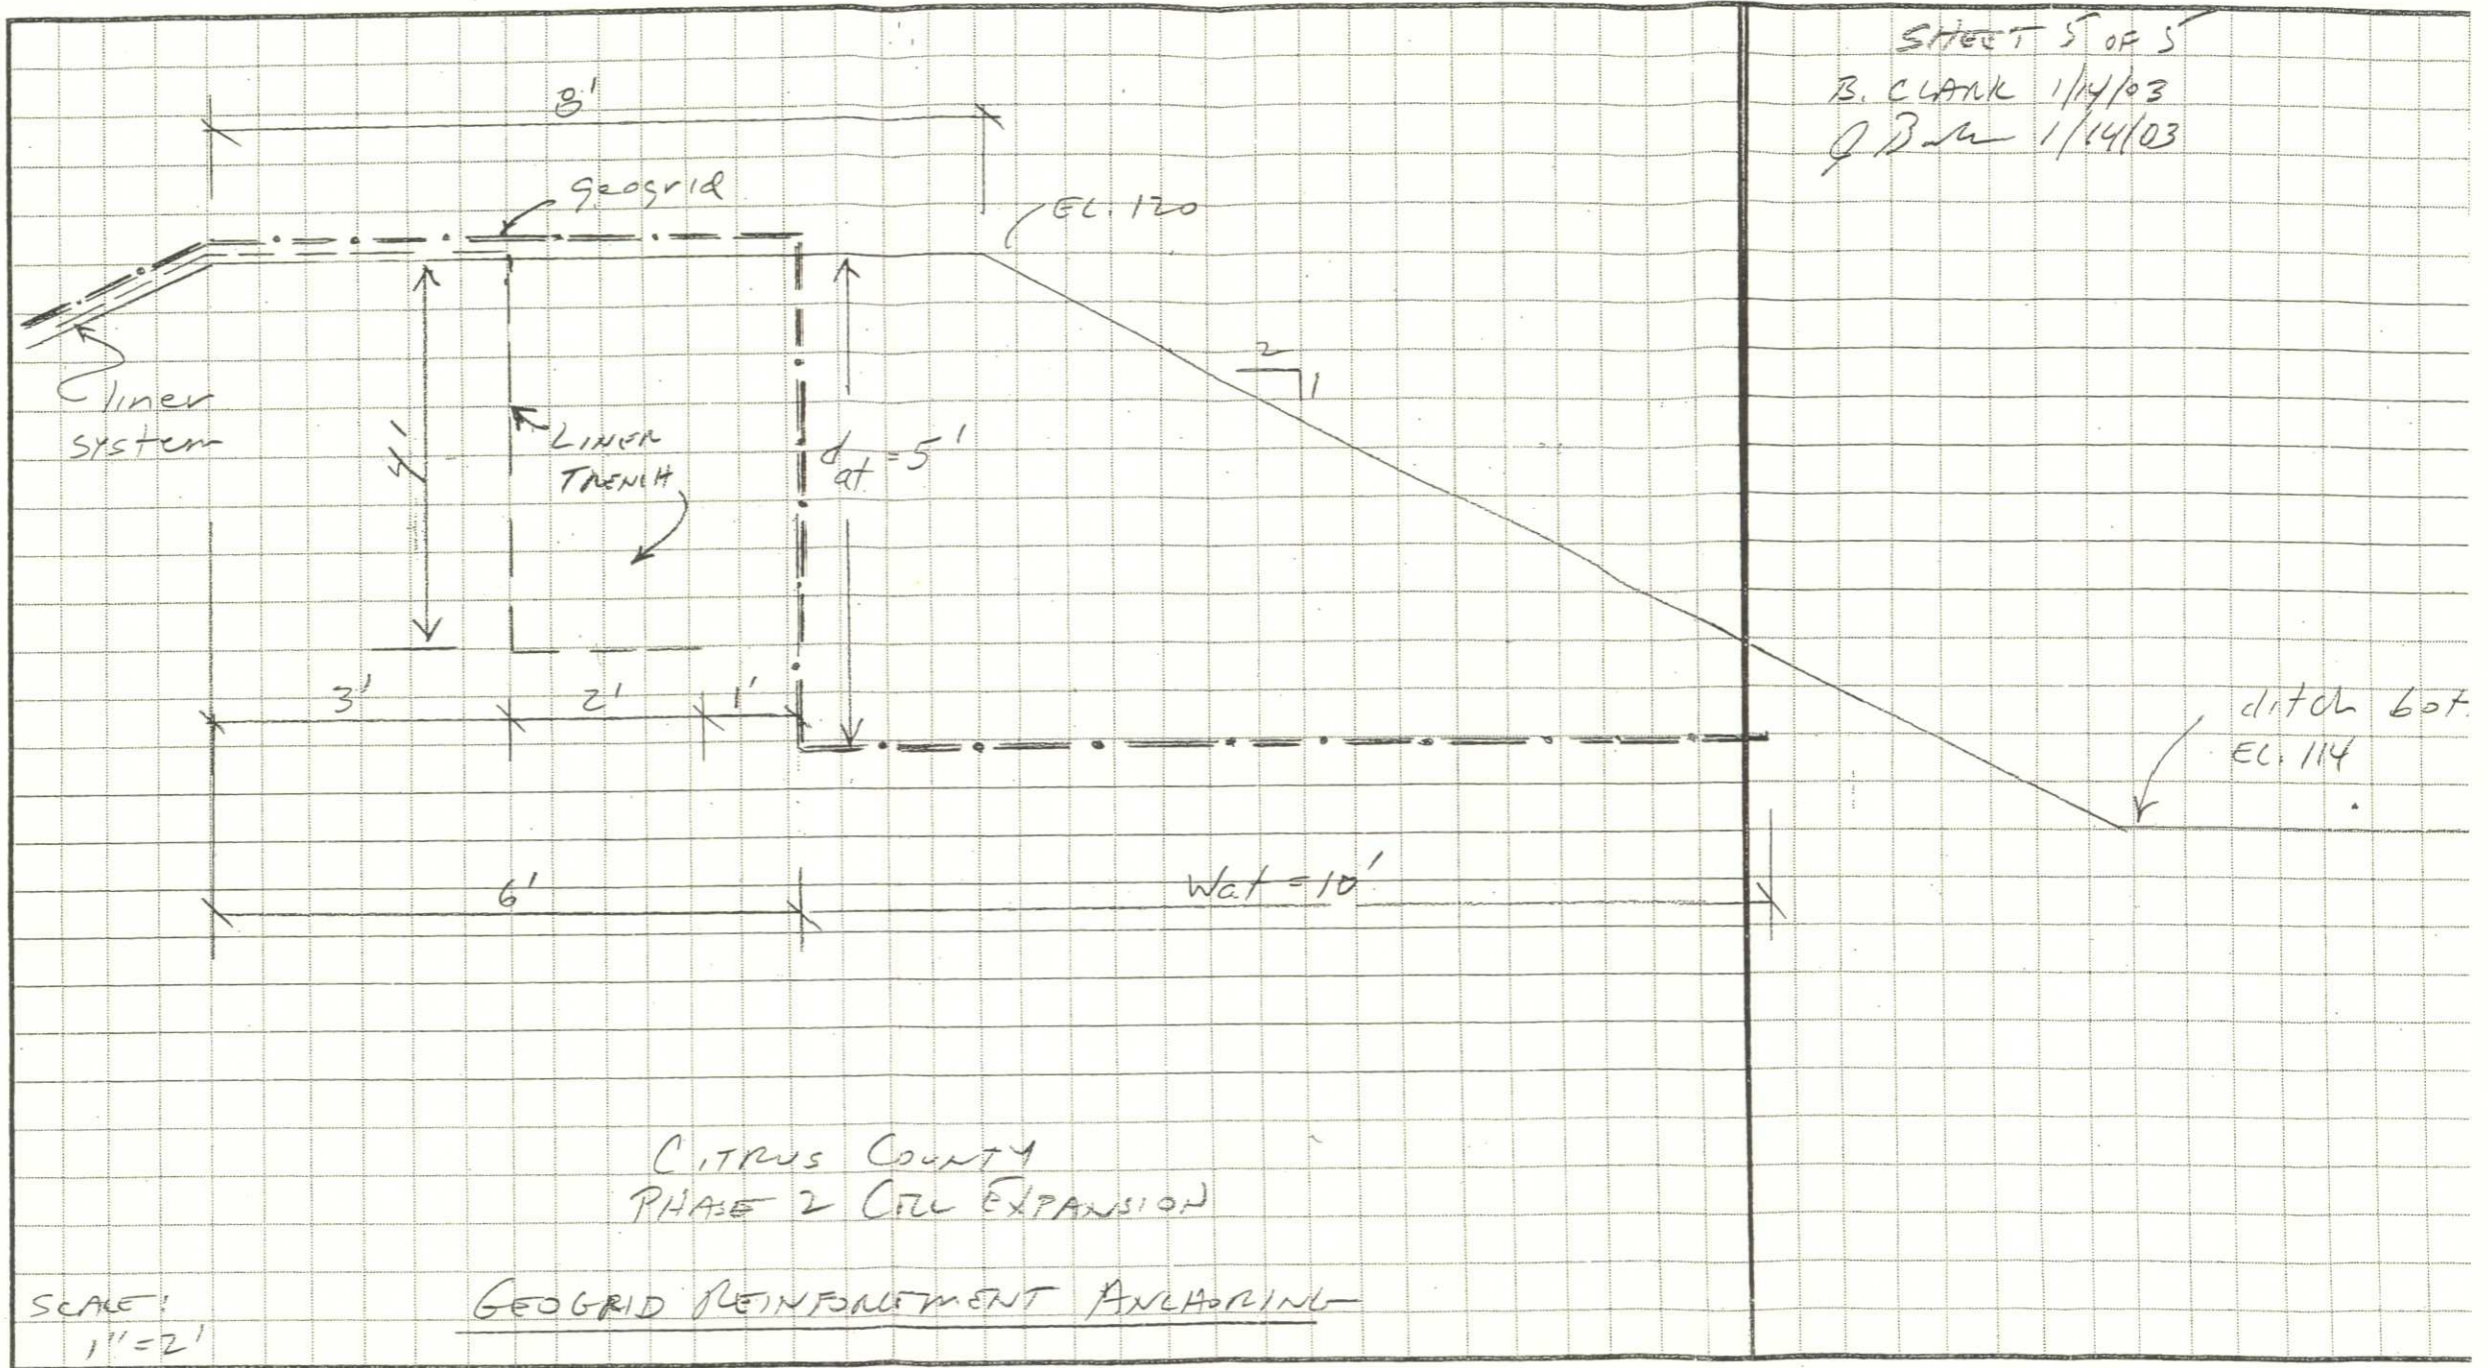 SHEET 5 OF 5
B. CLARK 1/14/03
1/14/03
8'
geogrid
EL. 120
2
1
liner
system
4'
LINER
TRENCH
d at = 5'
3'
2'
1'
ditch bot.
EL. 114
6'
Wat = 10'
CITRUS COUNTY
PHASE 2 CELL EXPANSION
GEOGRID REINFORCEMENT ANCHORING
SCALE:
1" = 2'